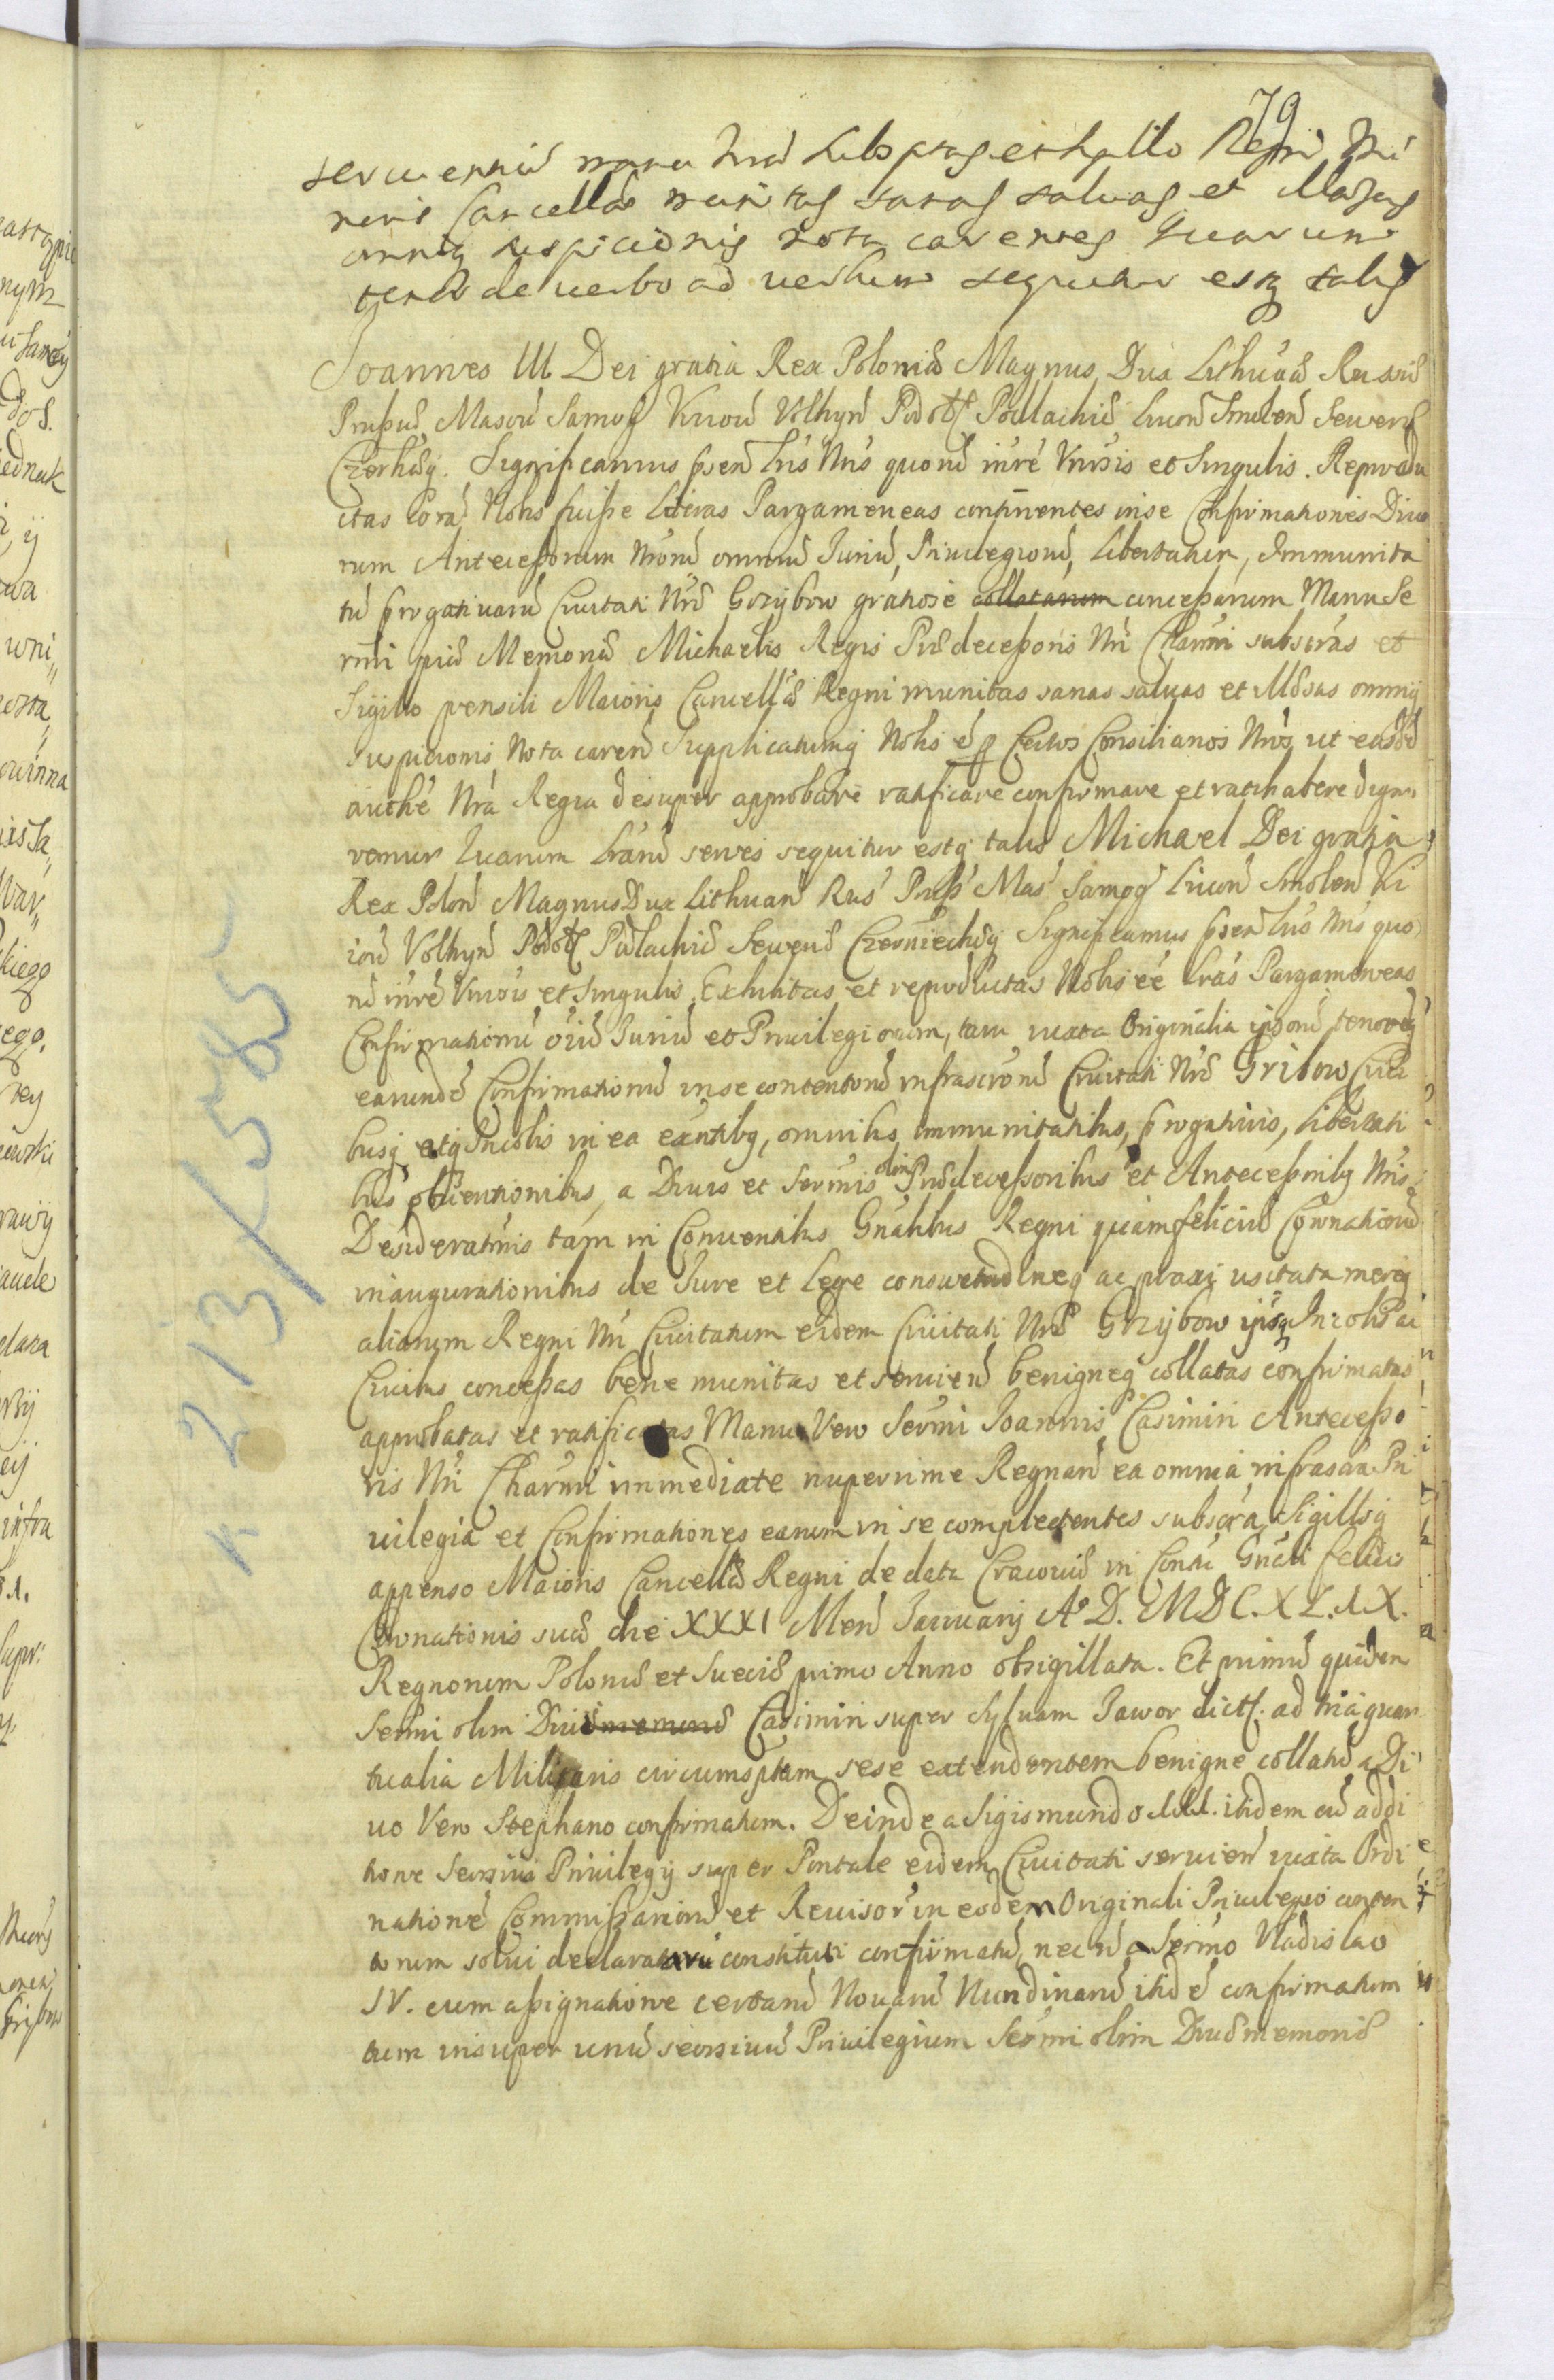 79
servientiu manu Nra subsptas et sigillo Regni Mi
noris Cancellae munitas sanas saluas et illaesas
omniq suspicionis nota carentes Quarum
tenor de verbo ad verbum sequitur estq talis
Joannes III Dei gratia Rex Poloniae Magnus Dux Lithuaae Russiae
Prussiae Masou Samog Kiiou Volhyn Podol Podlachiae Liuon Smolen Seueriae
Czerhoq. Significamus psen Lris Nris quoru inre Vnisis et Singulis. Reprodu
ctas cora Nobis fuisse Literas Pargameneas continentes in se Confirmationes Diuo
rum Antecessorum Nroru omniu Juriu, Priuilegioru, Libertatum, Immunita
tu progatiuaru Ciuitati Nrae Grzybow gratiose collatarum concessarum Manu Se
rmi piae Memoriae Michaelis Regis Praedecessoris Nri Charmi subscras et
Sigillo pensili Maioris Cancellae Regni munitas sanas saluas et illaesas omniq
suspicionis Nota caren Supplicatumq Nobis e p Certos Consiliarios Nros ut easde
aucthe Nra Regia desuper approbare ratificare confirmare et ratihabere digna
remur Quarum Lraru series sequitur estq talis Michael Dei gratia
Rex Polon Magnus Dux Lithuan Rus Pruss Mas Samog Liuon Smolen Ki
iou Volhyn Podol Podlachiae Seueriae Czerniechoq Significamus psen Lris Nris quo
ru inre Vnisis et Singulis. Exhibitas et reproductas Nobis ee Lras Pargameneas
Confirmationu oiu Juriu et Priuilegiorum, tam iuxta Originalia ipsoru tenoreq
earunde Confirmationu in se contentoru infrascroru Ciuitati Nrae Gribow Ciui
busq atq Incolis in ea exntibq, omnibus immunitatibus, progatiuis, libertati
bus obuentionibus, a Diuis et Sermis olim Praedecessoribus et Antecessoribq Nris
Desideratmis tam in Conuentibus Gnalibus Regni quam feliciu Coronationu
inaugurationibus de Jure et Lege consuetudineq ac praxi usitata moreq
aliarum Regni Nri Ciuitatum eidem Ciuitati Nrae Grzybow ipsq Incolis ac
Ciuibus concessas bene munitas et seruien benigneq collatas confirmatas
approbatas et ratificatas Manu Vero Sermi Joannis Casimiri Antecesso
ris Nri Charmi immediate nuperrime Regnan ea omnia infrascra Pri
uilegia et Confirmationes earum in se complectentes subscra, Sigilloq
appenso Maioris Cancellae Regni de data Cracouiae in Contu Gnali felicis
Coronationis suae die XXXI Men Januarij Ao D. MDC.XL.IX.
Regnorum Poloniae et Sueciae primo Anno obsigillata. Et primu quidem
Sermi olim Diui memoriae Casimiri super syluam Jawor dict. ad triaquar
tualia Miliaris circumsptam sese extendentem benigne collatu a Di
uo Vero Stephano confirmatum. Deinde a Sigismundo III. itidem cu addi
tione Seorsiui Priuilegij super Pontale eidem Ciuitati seruien iuxta Ordi
natione Commissarioru et Reuisor in eodem Originali Priuilegio conten
torum solui declarataru constituti confirmatu, nec no a Sermo Vladislao
IV. cum assignatione certaru Nouaru Nundinaru itide confirmatum
cum insuper unu seorsiuu Priuilegium Sermi olim Diuae memoriae
K 213/585